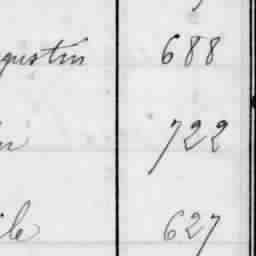 gustin 688
722
627